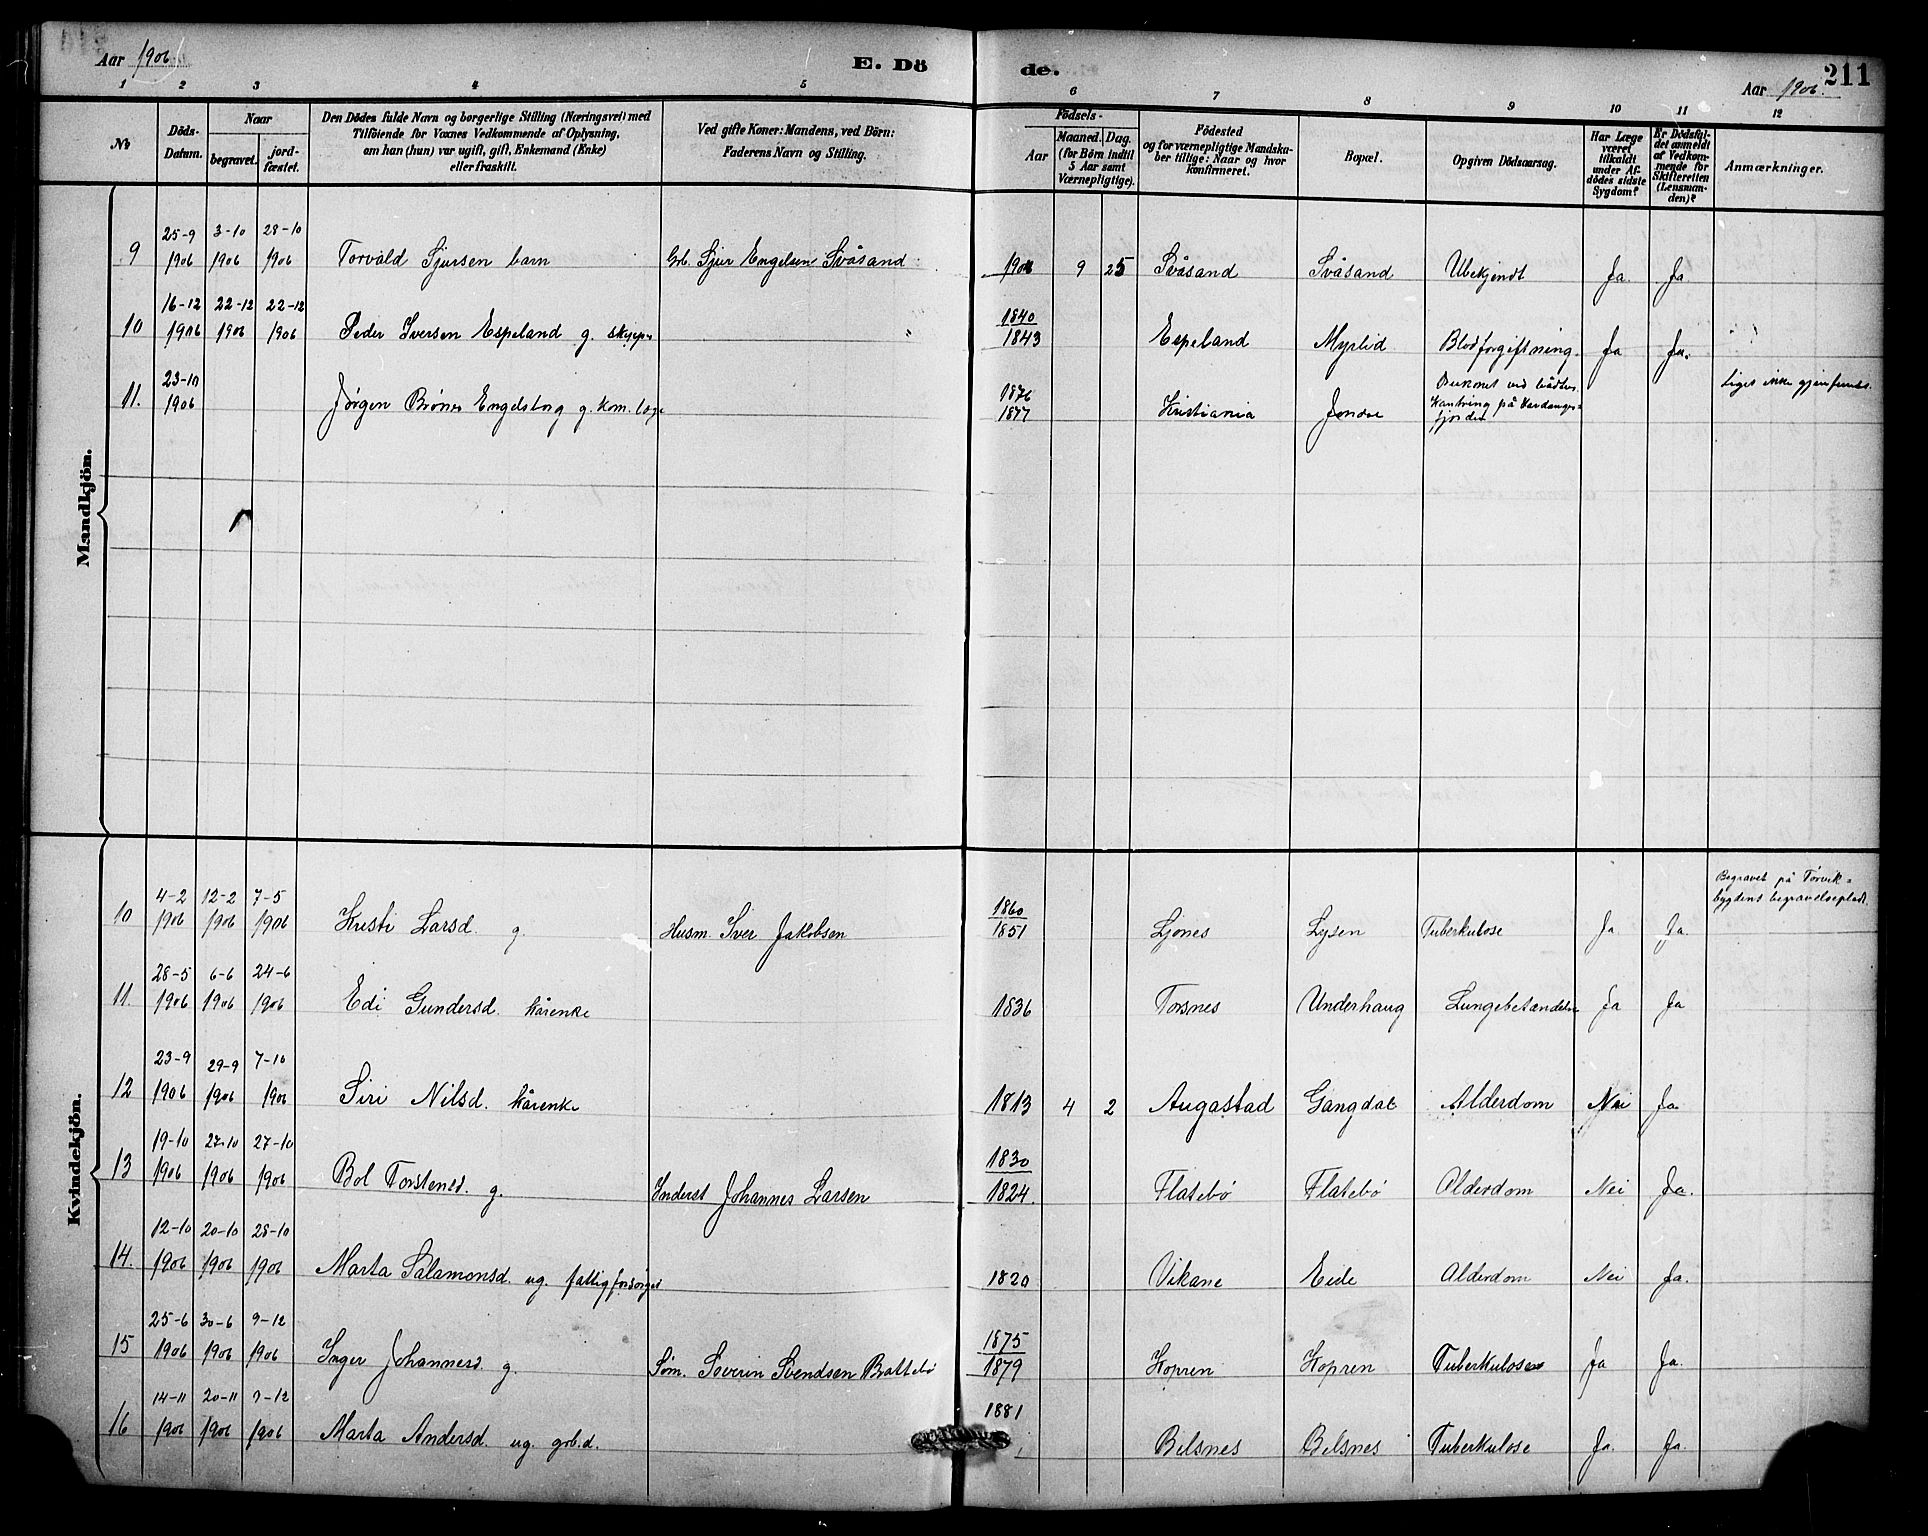 Aar 1906
E. Dö
de.
Aar 1906.
211
1 2 3 4 5 6 7 8 9 10 11 12
No
Döds-Datum.
Naar
begravet.
jord-fæstet.
Den Dödes fulde Navn og borgerlige Stilling (Næringsvei) med
Tilföiende for Voxnes Vedkommende af Oplysning,
om han (hun) var ugift, gift, Enkemand (Enke)
eller fraskilt.
Ved gifte Koner: Mandens, ved Börn:
Faderens Navn og Stilling.
Födsels-
Aar
Maaned. Dag.
(for Börn indtil
5 Aar samt
Værnepligtige).
Födested
og for værnepligtige Mandska-
ber tillige: Naar og hvor
konfirmeret.
Bopæl.
Opgiven Dödsaarsag.
Har Læge
været
tilkaldt
under Af-
dödes sidste
Sygdom?
Er Dödsfal-
det anmeldt
af Vedkom-
mende for
Skifteretten
(Lensman-
den)?
Anmærkninger.
Mandkjön.
25-9 3-10 28-10
9 1906 1906 1906 Torvald Sjursen barn Grb. Sjur Engelsen Svåsand 9 25 Svåsand Svåsand Ubekjendt Ja. Ja
16-12 22-12 22-12 1840
10 1906 1906 1906 Peder Iversen Espeland g. skipper " 1843 Espeland Myrlid Blodforgiftning. Ja Ja.
23-10 1876 Druknet ved bådens Liget ikke gjenfundet.
11. 1906 Jørgen Brønes Engelstorg g. kom. læge 1877 Kristiania Jondøl Kantring på Hardanger-
fjorden
Kvindekjön.
4-2 12-2 7-5 1860 Begravet på Torvik-
bygdens begravelseplads.
10 1906 1906 1906 Kristi Larsd. g Husm. Iver Jakobsen 1851 Ljones Lysen Tuberkulose Ja Ja.
28-5 6-6 24-6
11. 1906 1906 1906 Edi Gundersd. kårenke 1836 Torsnes Underhaug Lungebetændelse Ja Ja
23-9 29-9 7-10
12 1906 1906 1906 Siri Nilsd. kårenke 1813 4 2 Augastad Gangdal Alderdom Nei Ja.
19-10 27-10 27-10 1830
13 1906 1906 1906 Bol Torstensd. g. Inderst Johannes Larsen 1824. Flatebø Flatebø Alderdom Nei Ja.
12-10 20-10 28-10
14. 1906 1906 1906 Marta Salamonsd. ug. fattigforsørget 1820 Vikane Eide Alderdom Nei Ja.
25-6 30-6 9-12 1875
15 1906 1906 1906 Inger Johannesd. g. Søm. Severin Svendsen Brattebø 1879 Kopren Kopren Tuberkulose Ja Ja.
14-11 20-11 9-12 1881
16 1906 1906 1906 Marta Andersd. ug. grb.d. Belsnes Belsnes Tuberkulose Ja. Ja.